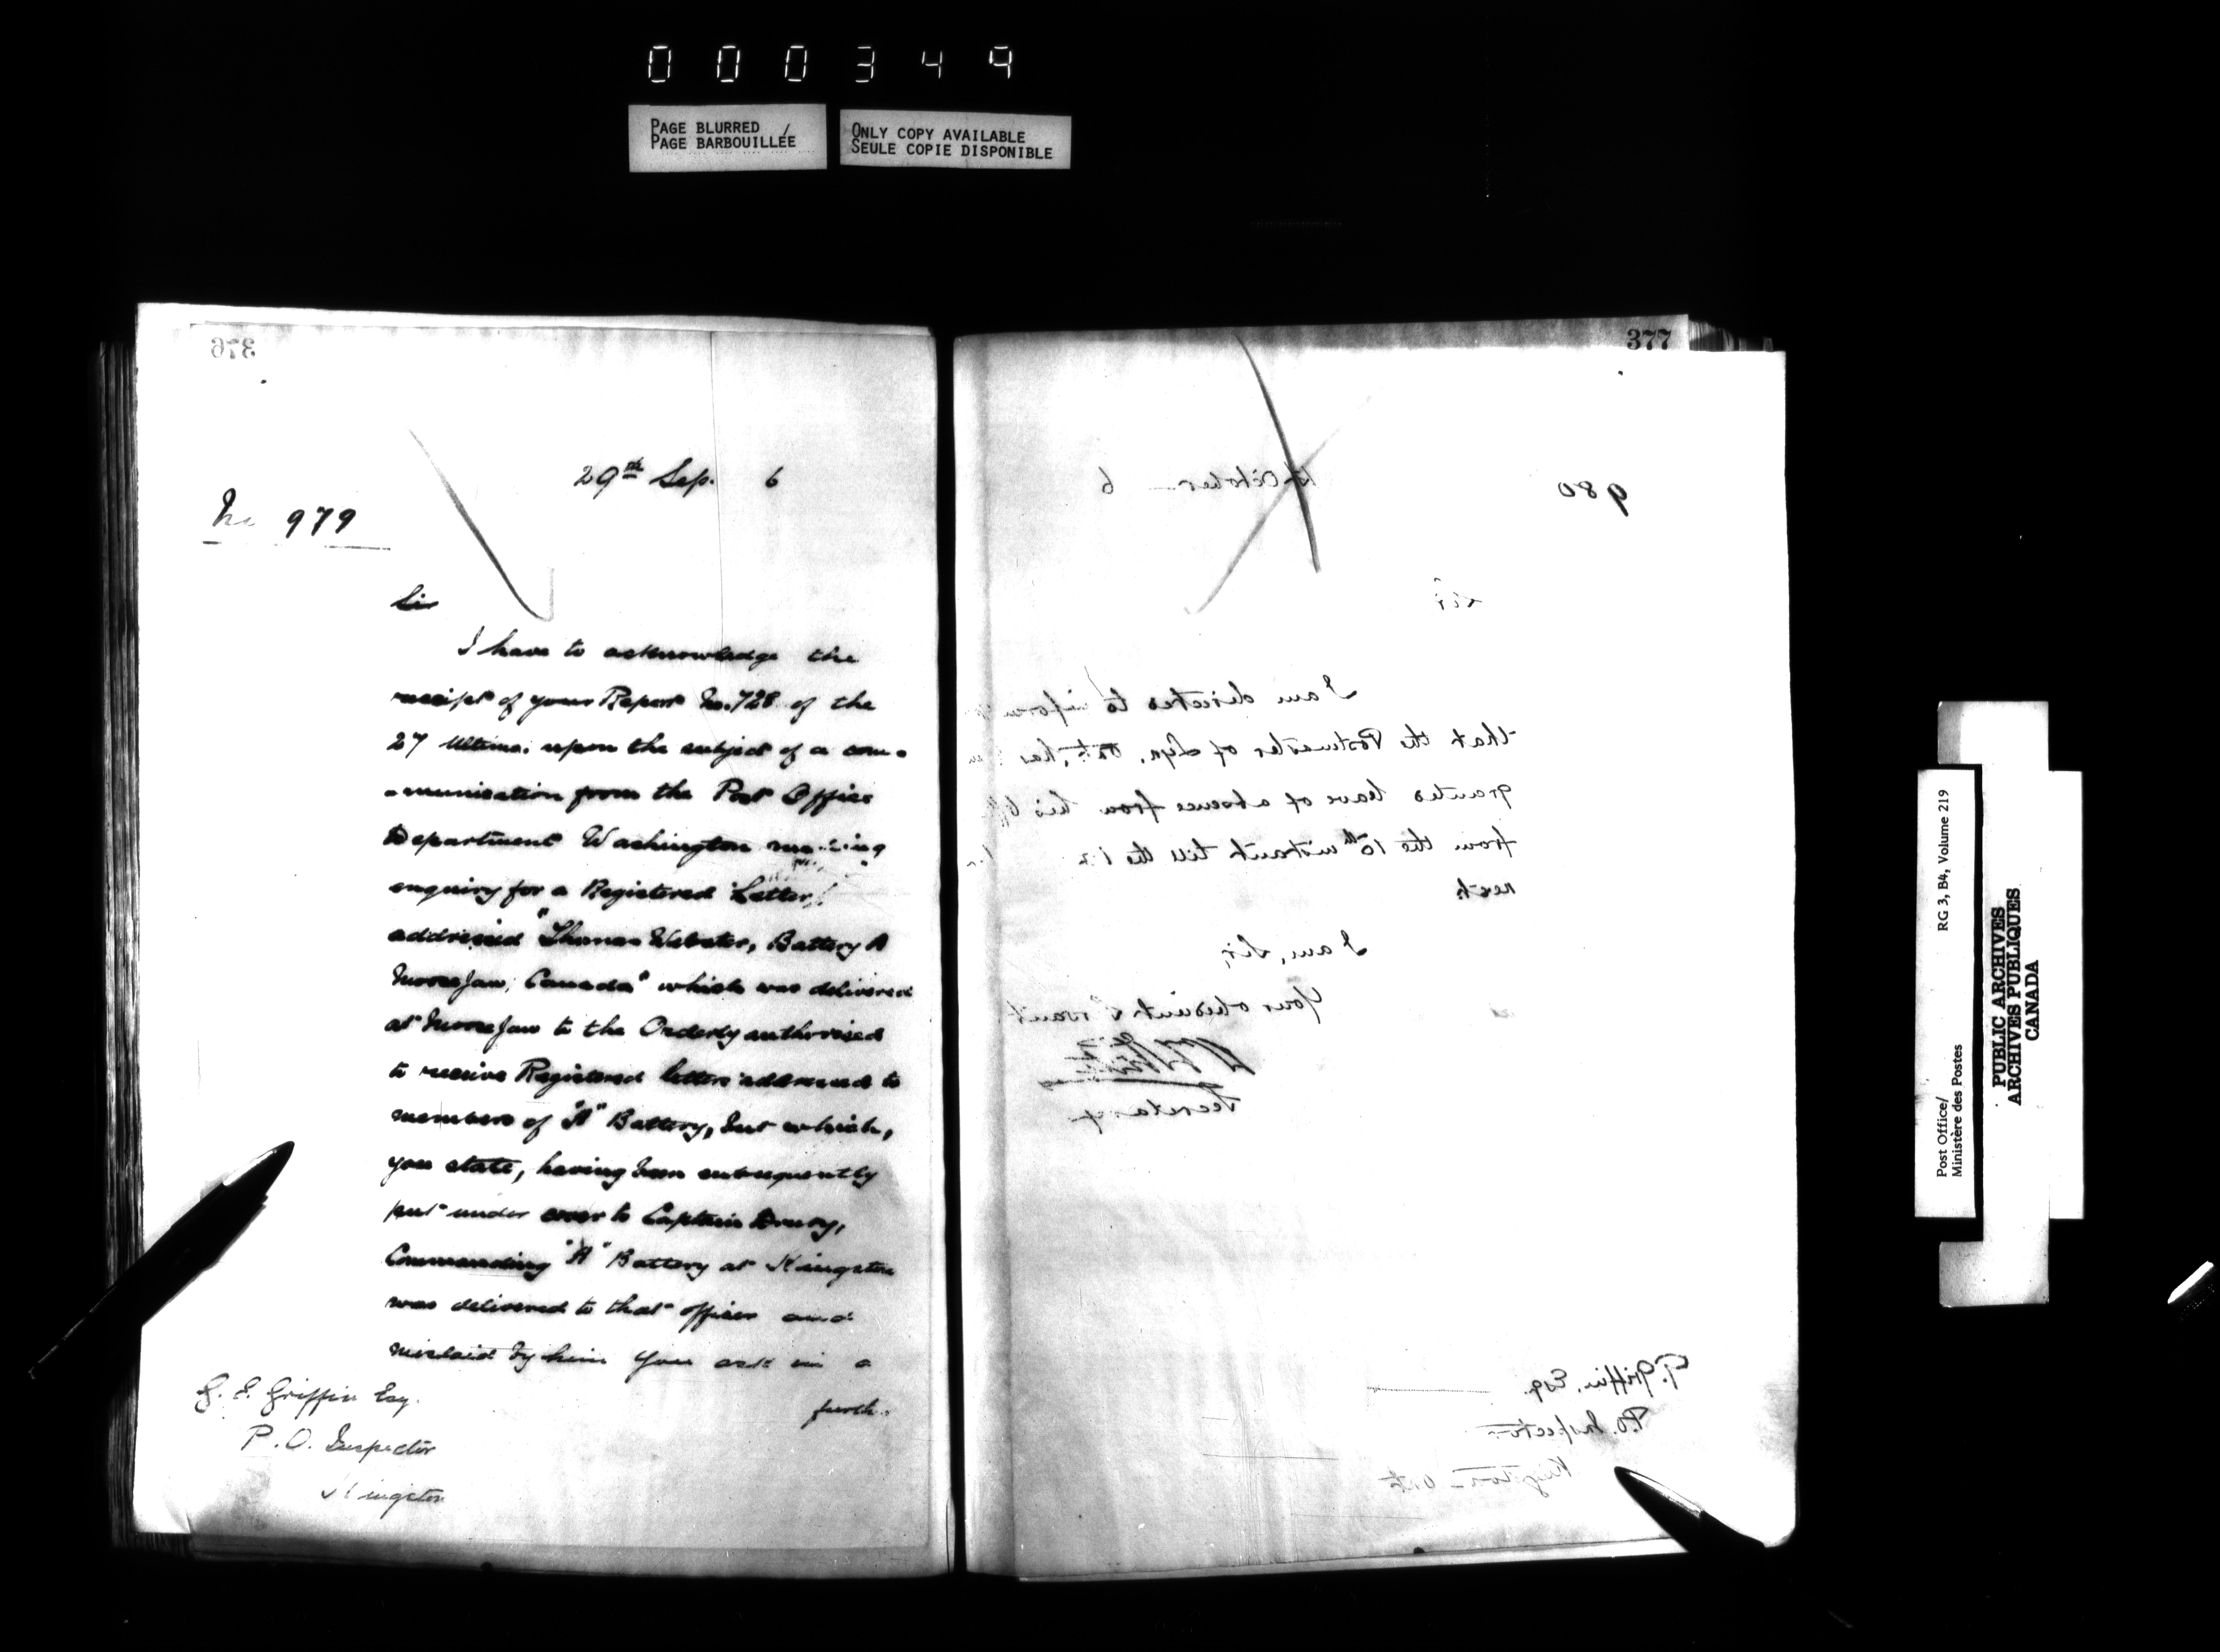 000349
PAGE BLURRED
PAGE BARBOUILLÉE
ONLY COPY AVAILABLE
SEULE COPIE DISPONIBLE
376
29th Sep. 6
No 979
Sir
I have to acknowledge the
receipt of your Report No. 728 of the
27 Ultimo: upon the subject of a com-
-munication from the Post Office
Department Washington making
enquiry for a Registered Letter
addressed "Thomas Webster, Battery A
Moose Jaw, Canada" which was delivered
at Moose Jaw to the Orderly authorised
to receive Registered letters addressed to
members of "A" Battery, but which,
you state, having been subsequently
put under cover to Captain Drury,
Commanding "A" Battery at Kingston
was delivered to that officer and
mislaid by him You ask in a
furth.
G. E. Griffin Esq.
P. O. Inspector
Kingston
377
980
1st October 6
Sir
I am directed to inform
that the Postmaster of Lyn, Ont., has
granted leave of absence from his
from the 15th instant till the
next.
I am, Sir,
Your obedient Servant
Secretary
G. Griffin, Esq.
P.O. Inspector
Kingston - Ont
Post Office/
Ministère des Postes
RG 3, B4, Volume 219
PUBLIC ARCHIVES
ARCHIVES PUBLIQUES
CANADA